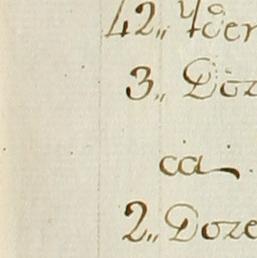 42„ Ider
3„ Doz
ca
2„ Doze